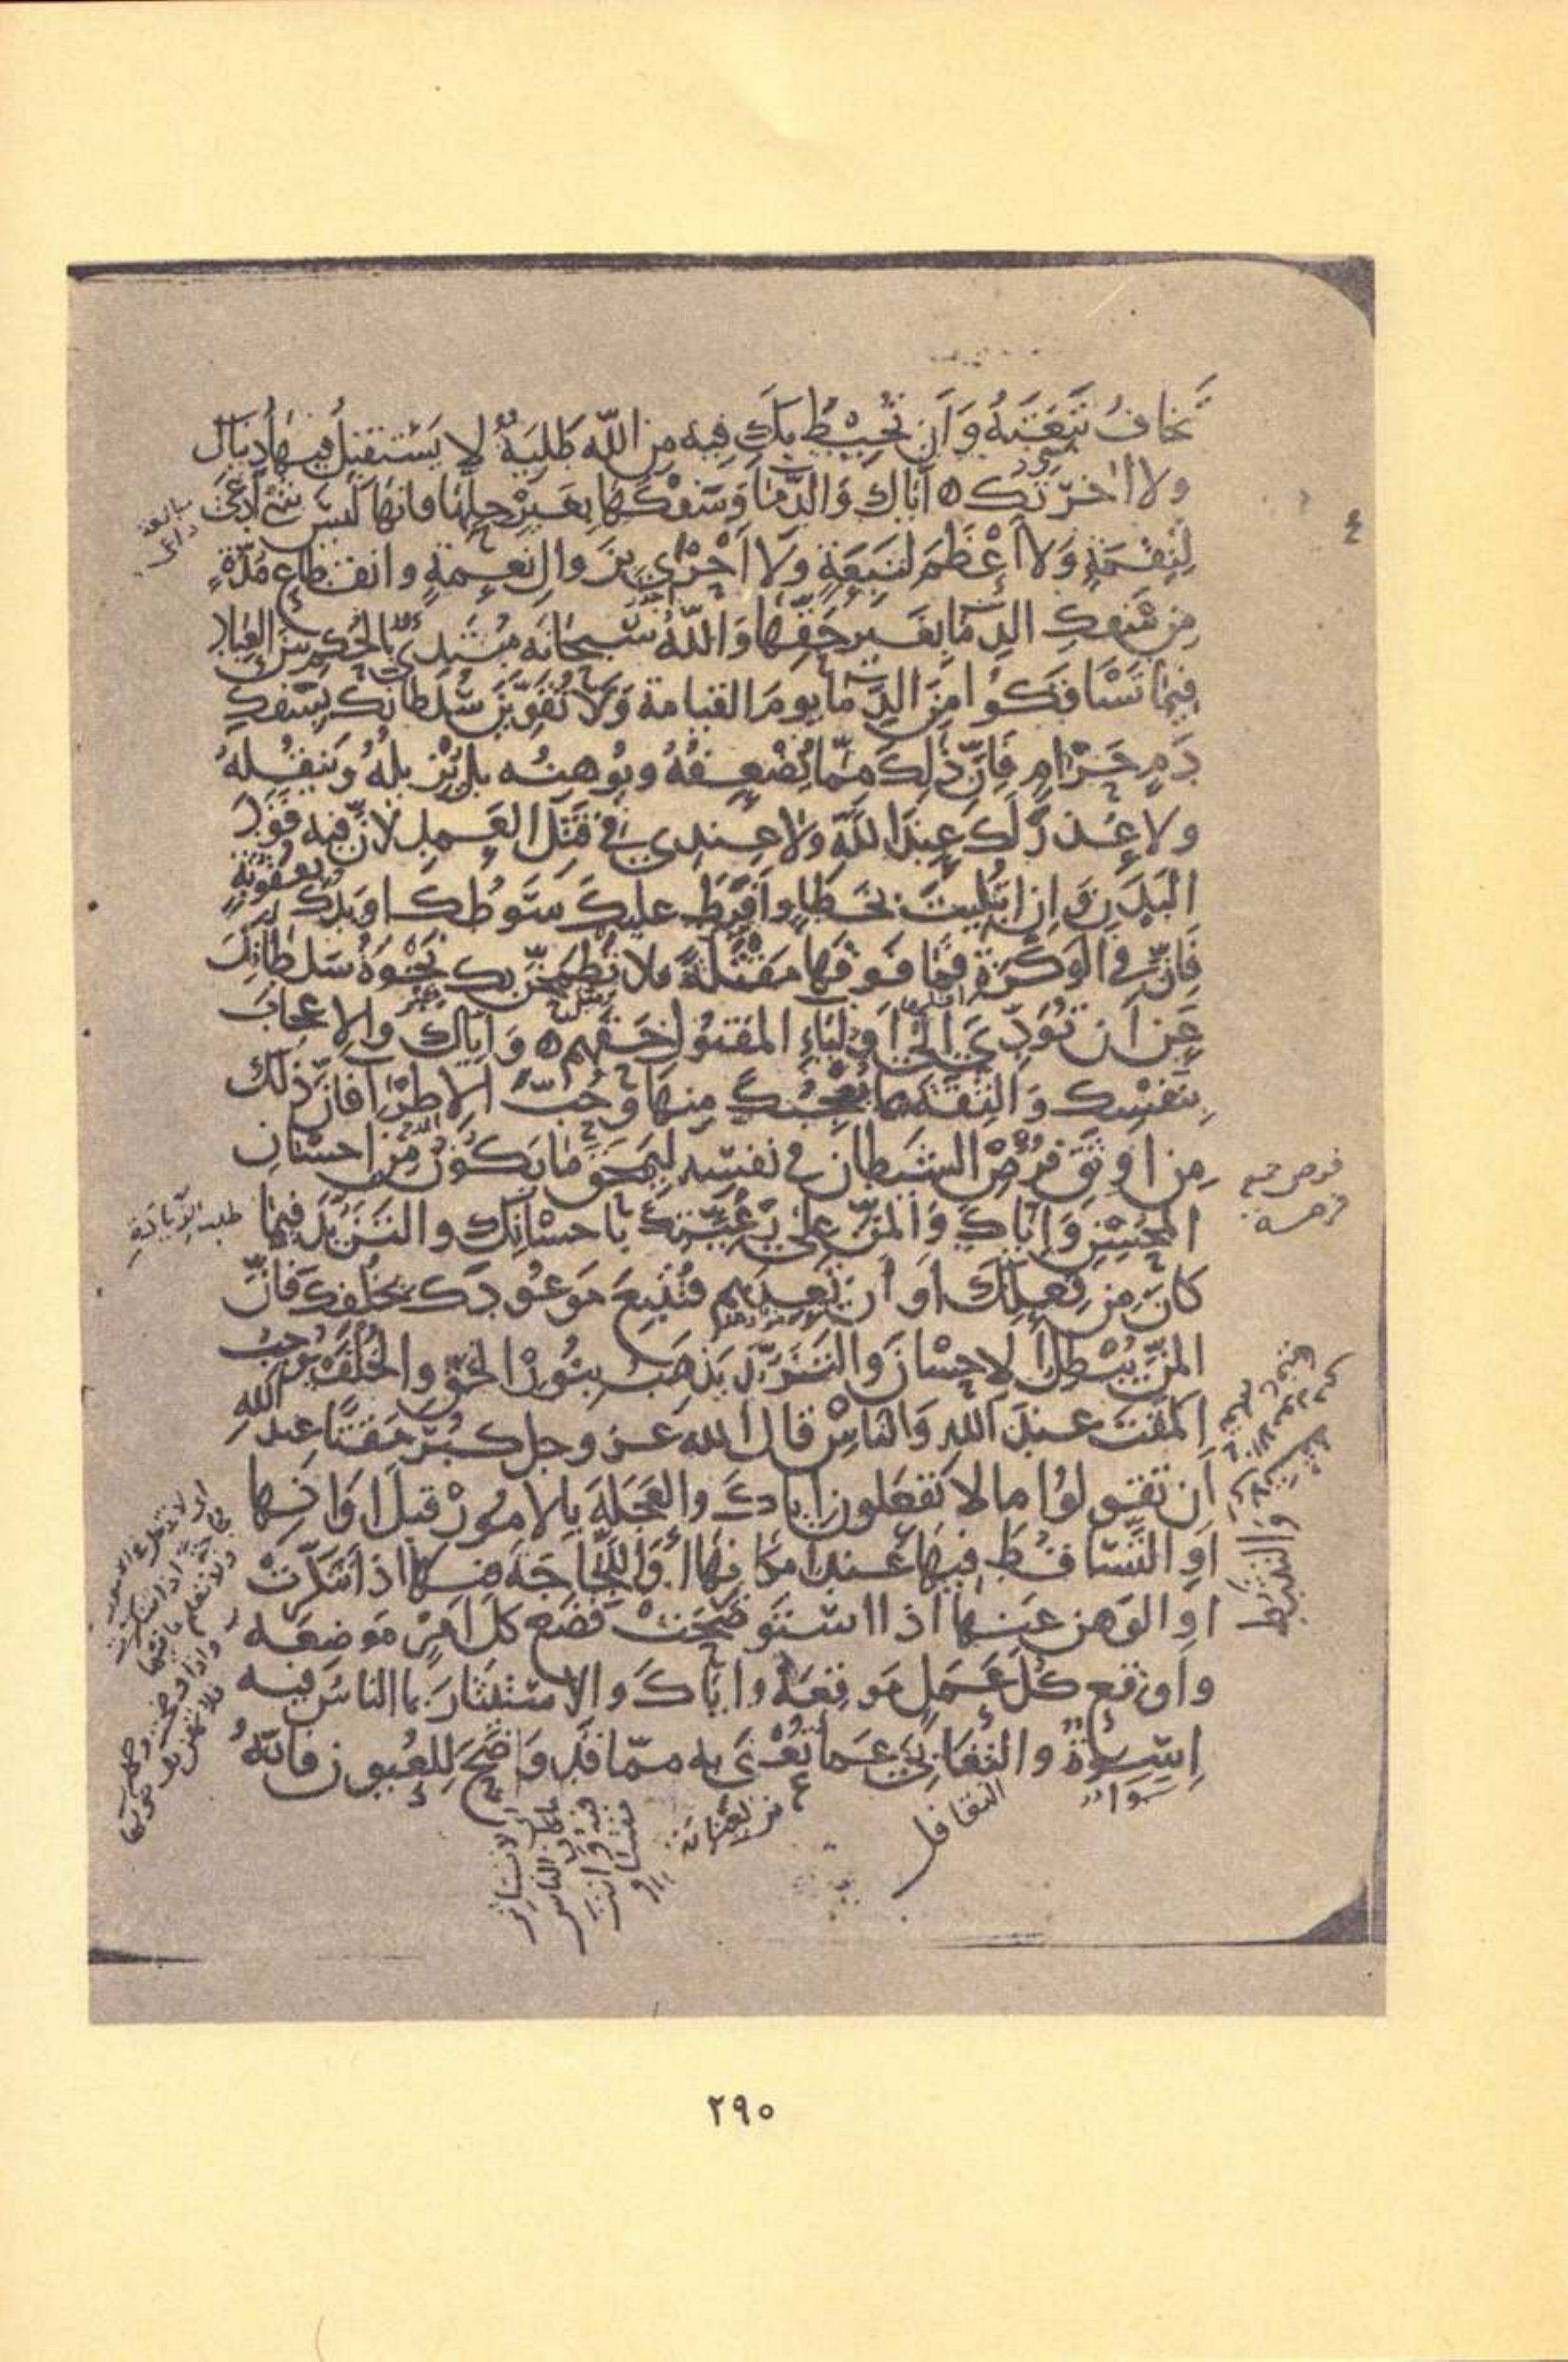 تَخافُ تَبِعَتَهُ وَأَن تُحِيْطَ بِكَ فِيهِ مِنَ اللّهِ طَلِبَةٌ لا يَسْتَقِيلُ فِيهَا دُنيَاكَ
ولا اخرتك ٥ اياكَ وَالدِّمَا وَسَفْكَهَا بِغَيْرِ حِلِّهَا فانهَا لَيسَ شَيْ أَدْعَى
لِنِقْمَةٍ وَلا أَعْظَمَ لِتَبِعَةٍ وَلَا أَحْرَى بِزَوالِ نِعمةٍ وانقطاعِ مُدّةٍ
مِن سَفكِ الدِّمَا بِغَيرِ حَقِّهَا وَاللّهُ سُبحانَه مُبتَدئ بِالحُكمِ بَينَ العِبادِ
فِيمَا تَسَافَكُوا مِنَ الدِّمَا يومَ القيامة وَلَا تُقَوِّيَنَّ سُلطانَكَ بِسَفكِ
دَمٍ حَرَامٍ فَاِنَّ ذَلِكَ مِمَّا يُضْعِفُهُ ويُوهِنُه بل يُزِيلهُ وَيَنقُلهُ
ولا عُذرَ لَكَ عِندَ اللّهِ ولا عِندي في قَتلِ العَمدِ لانَّ فيه قَوَدَ
البَدَنِ وَاِنِ ابتُلِيتَ بِخَطَاءٍ وأَفرَطَ عليكَ سَوطُكَ اويدُكَ بِعُقوبَةٍ
فَاِنَّ في الوَكْزَةِ فَمَا فَوقَهَا مَقْتَلَةً فلا تَطمَحَنَّ بِكَ نَخْوَةُ سلطانِكَ
عَن أن تُؤَدِّيَ الى أَولِيَاءِ المَقتُولِ حَقَّهم ٥ وَاِيّاكَ والإعجابَ
بِنَفسِكَ وَالثِّقَةَ بما يُعْجِبُكَ مِنهَا وَحُبَّ الإطرَا فَاِنَّ ذلك
مِن اوثَقِ فُرَصِ الشيطان في نفسِه لِيَمحَقَ مَا يَكُونُ مِن اِحسَانِ
المُحسِنِ وَاِيّاكَ وَالمَنَّ على رَعِيَّتِكَ باحسانِكَ والتَزَيُّدَ فيما
كانَ مِن فِعلِكَ او أن تَعِدَهم فَتُتبِعَ مَوعُودَكَ بخُلفِكَ فَانَّ
المَنَّ يُبْطِلُ الاحْسانَ والتَزَيُّدَ يَذهَبُ بنُورِ الحَقِّ والخُلفَ يُوجِبُ
المَقتَ عندَ اللهِ وَالناسِ قال الله عز وجل كَبُرَ مَقتًا عند اللهِ
أن تقولوا ما لا تفعَلونَ اياكَ والعَجَلَةَ بالامورِ قبلَ اوَانِها
أوِ التَّسَاقُطَ فيهَا عندَ امكانِهَا أَوِ اللَّجَاجَةَ فيها اذا تَنَكَّرَتْ
اوِ الوَهنَ عنها اذا استَوضَحَتْ فَضَع كلَّ امرٍ مَوضِعَه
واَوقِع كُلَّ عَمَلٍ مَوقِعَهُ واِيّاكَ والاستئثَارَ بما الناسُ فيه
اِسْوَةٌ والتغابيَ عَما تُعْنَى به ممّا قد وَضَحَ لِلعُيونِ فانّهُ
فرص جمع
فرصه
طلب الزيادة
والتثبط
سواء
التغافل
من العناية
اي لا تستاثر
بما كان الناس
فيه وانت
متساو
٢٩٠